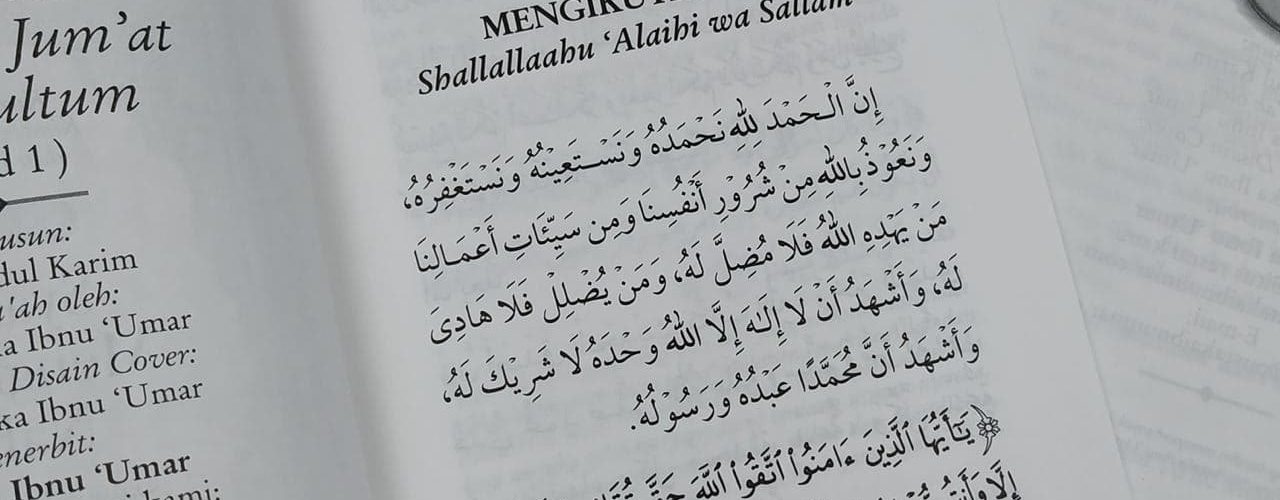 Jum'at
d 1 )
usun:
dul Karim
oleh:
a Ibnu ‘Umar
Disain Cover:
ka Ibnu ‘Umar
enerbit:
Ibnu ‘Umar
kami:
Shallallaahu ‘Alaihi wa Sallam
إِنَّ الْحَمْدَ لِلّٰهِ نَحْمَدُهُ وَنَسْتَعِيْنُهُ وَنَسْتَغْفِرُهُ،
وَنَعُوْذُ بِاللهِ مِنْ شُرُوْرِ أَنْفُسِنَا وَمِنْ سَيِّئَاتِ أَعْمَالِنَا
مَنْ يَهْدِهِ اللهُ فَلَا مُضِلَّ لَهُ، وَمَنْ يُضْلِلْ فَلَا هَادِىَ
لَهُ، وَأَشْهَدُ أَنْ لَا إِلٰهَ إِلَّا اللهُ وَحْدَهُ لَا شَرِيْكَ لَهُ،
وَأَشْهَدُ أَنَّ مُحَمَّدًا عَبْدُهُ وَرَسُوْلُهُ.
﴿يَٰٓأَيُّهَا ٱلَّذِينَ ءَامَنُوا۟ ٱتَّقُوا۟ ٱللَّهَ حَقَّ
إِلَّا